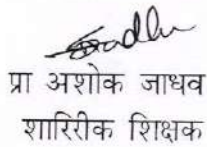 प्रा अशोक जाधव
शारिरीक शिक्षक